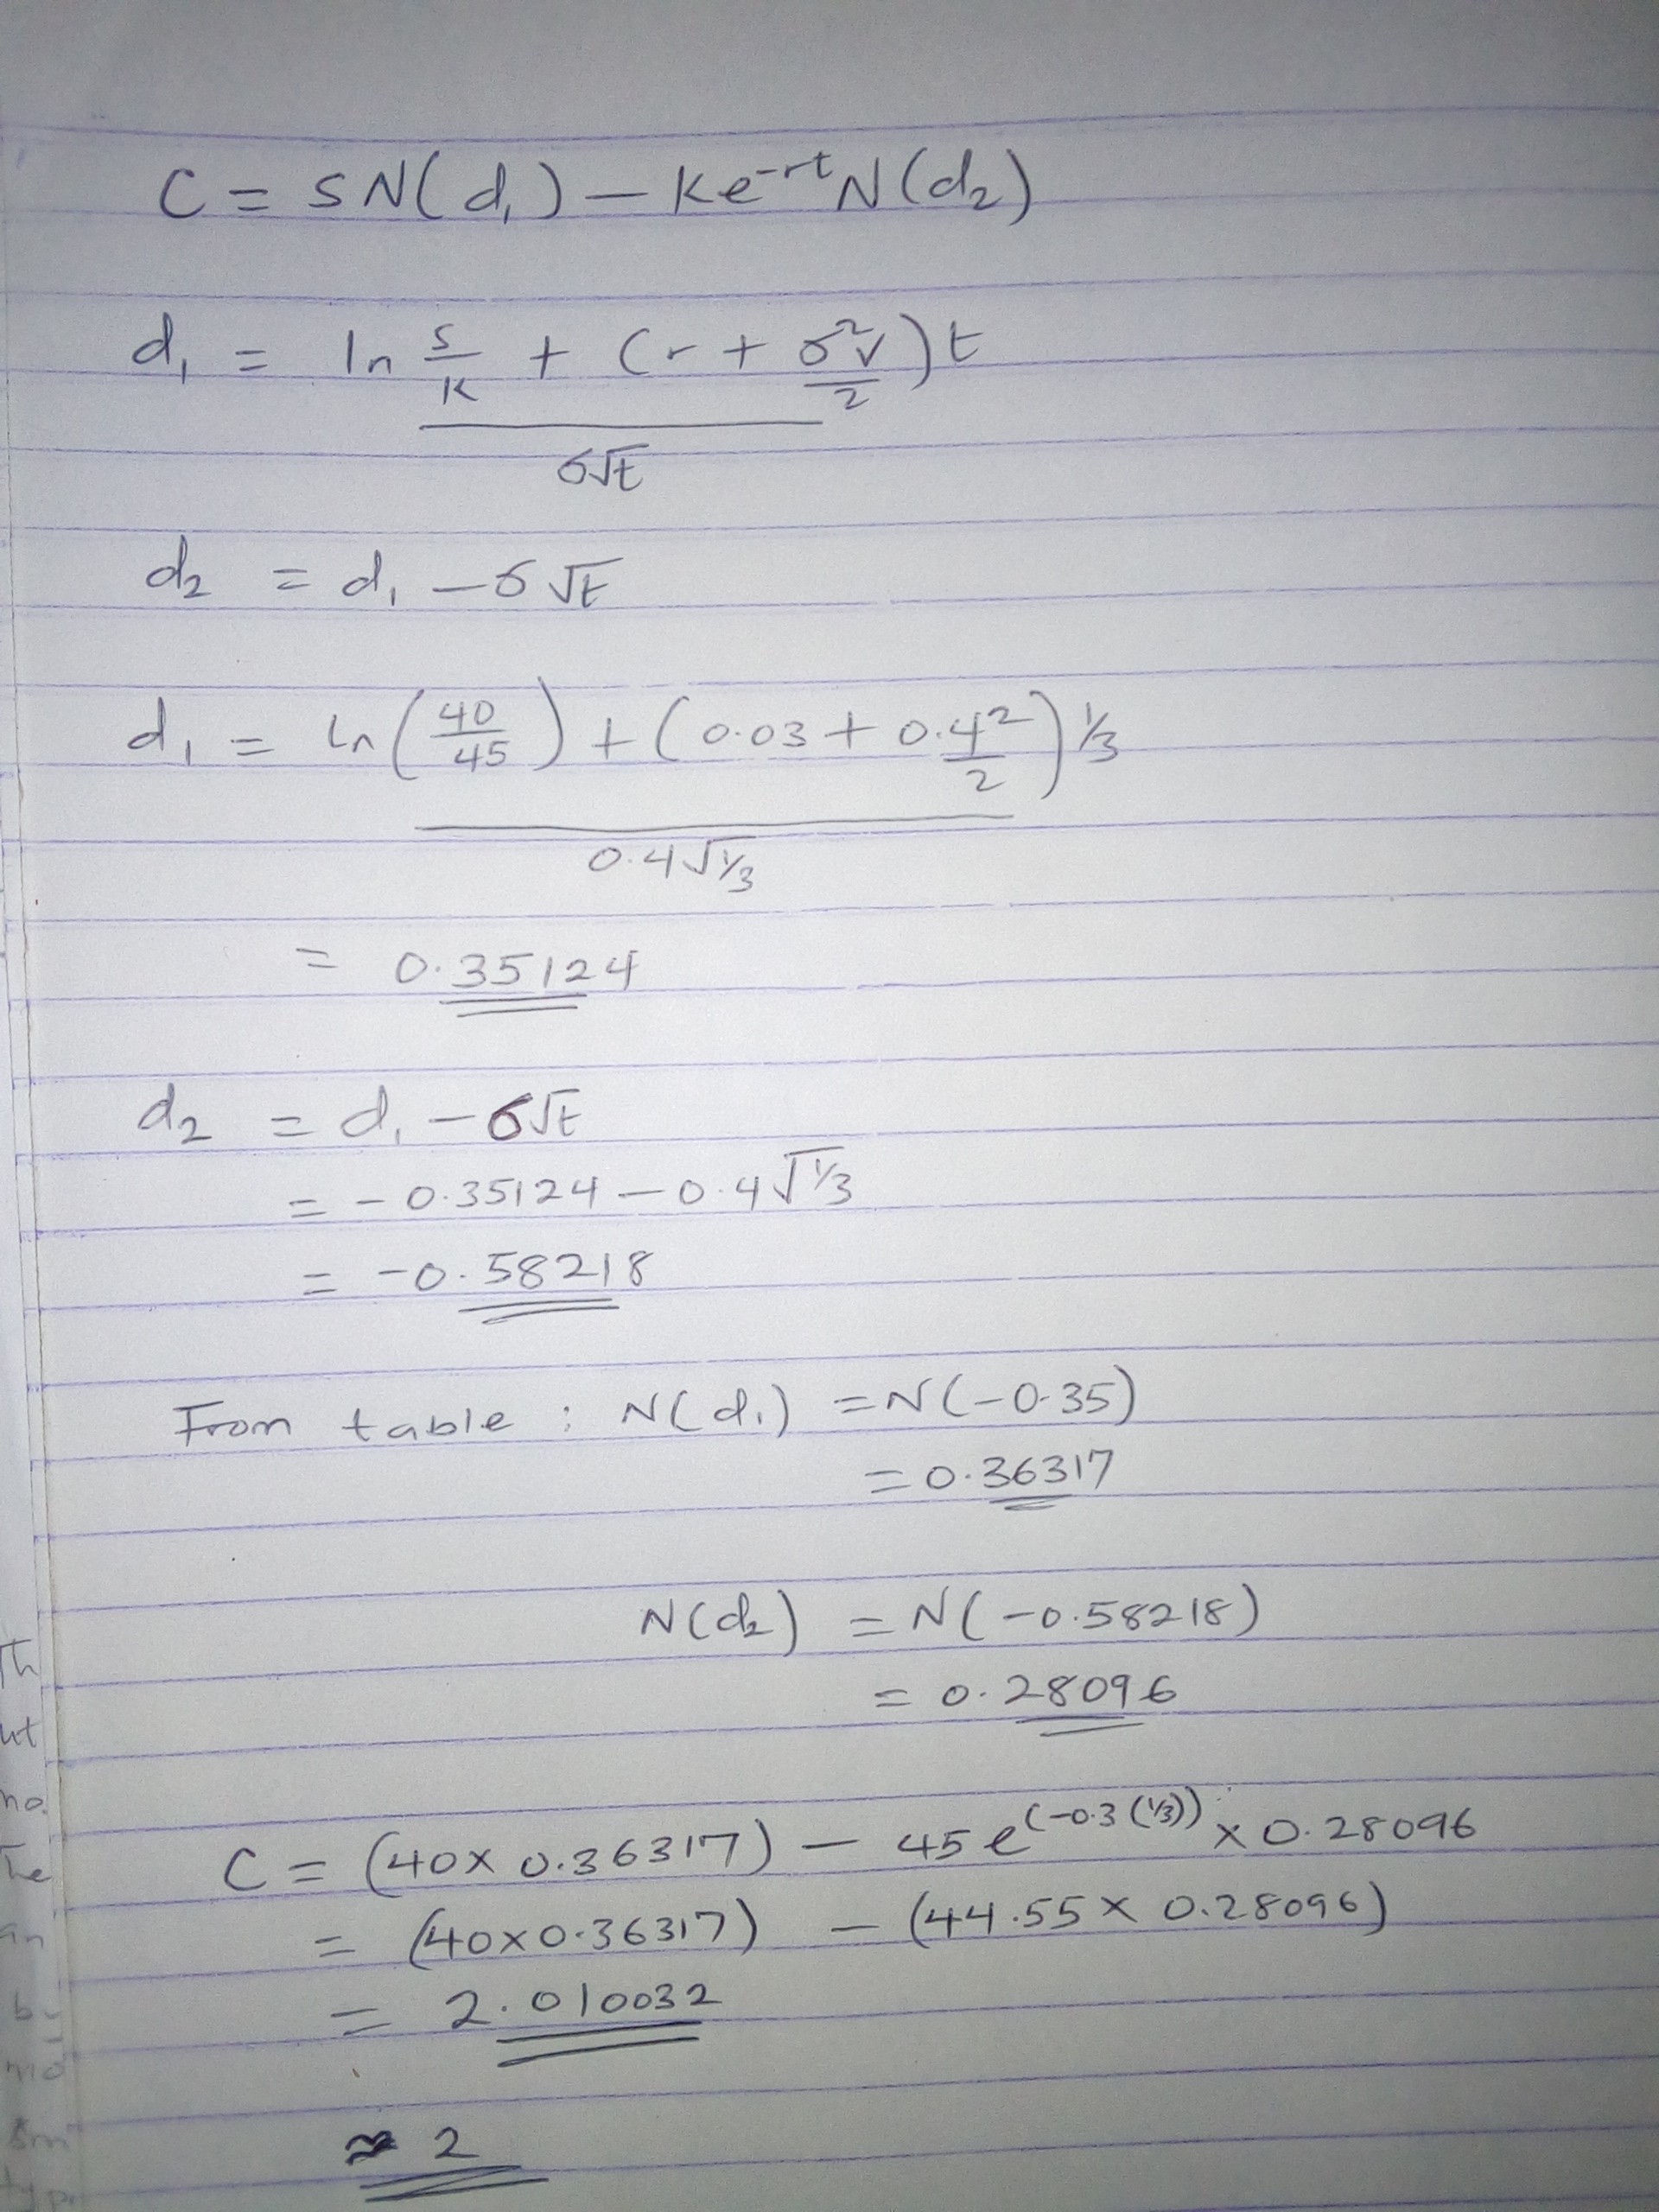 C = SN(d₁) - Ke^-rt N(d₂)
d₁ = ln S/K + (r + σ²√/2)t
σ√t
d₂ = d₁ - σ√t
d₁ = ln(40/45) + (0.03 + 0.4²/2) 1/3
0.4√1/3
= 0.35124
d₂ = d₁ - σ√t
= -0.35124 - 0.4√1/3
= -0.58218
From table : N(d₁) = N(-0.35)
= 0.36317
N(d₂) = N(-0.58218)
= 0.28096
C = (40 x 0.36317) - 45e^(-0.3(1/3)) x 0.28096
= (40x0.36317) - (44.55 x 0.28096)
= 2.010032
≈ 2
Th
ut
no.
The
an
mo
typ